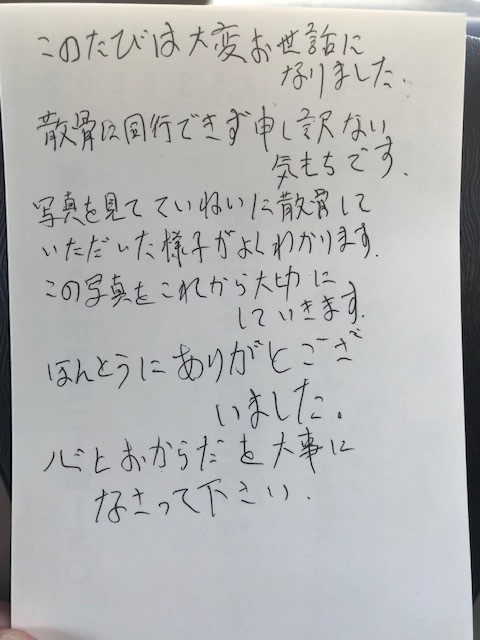 このたびは大変お世話に
なりました.
散骨に同行できず申し訳ない
気もちです.
写真を見てていねいに散骨して
いただいた様子がよくわかります.
この写真をこれから大切に
していきます.
ほんとうにありがとござ
いました。
心とおからだを大事に
なさって下さい.